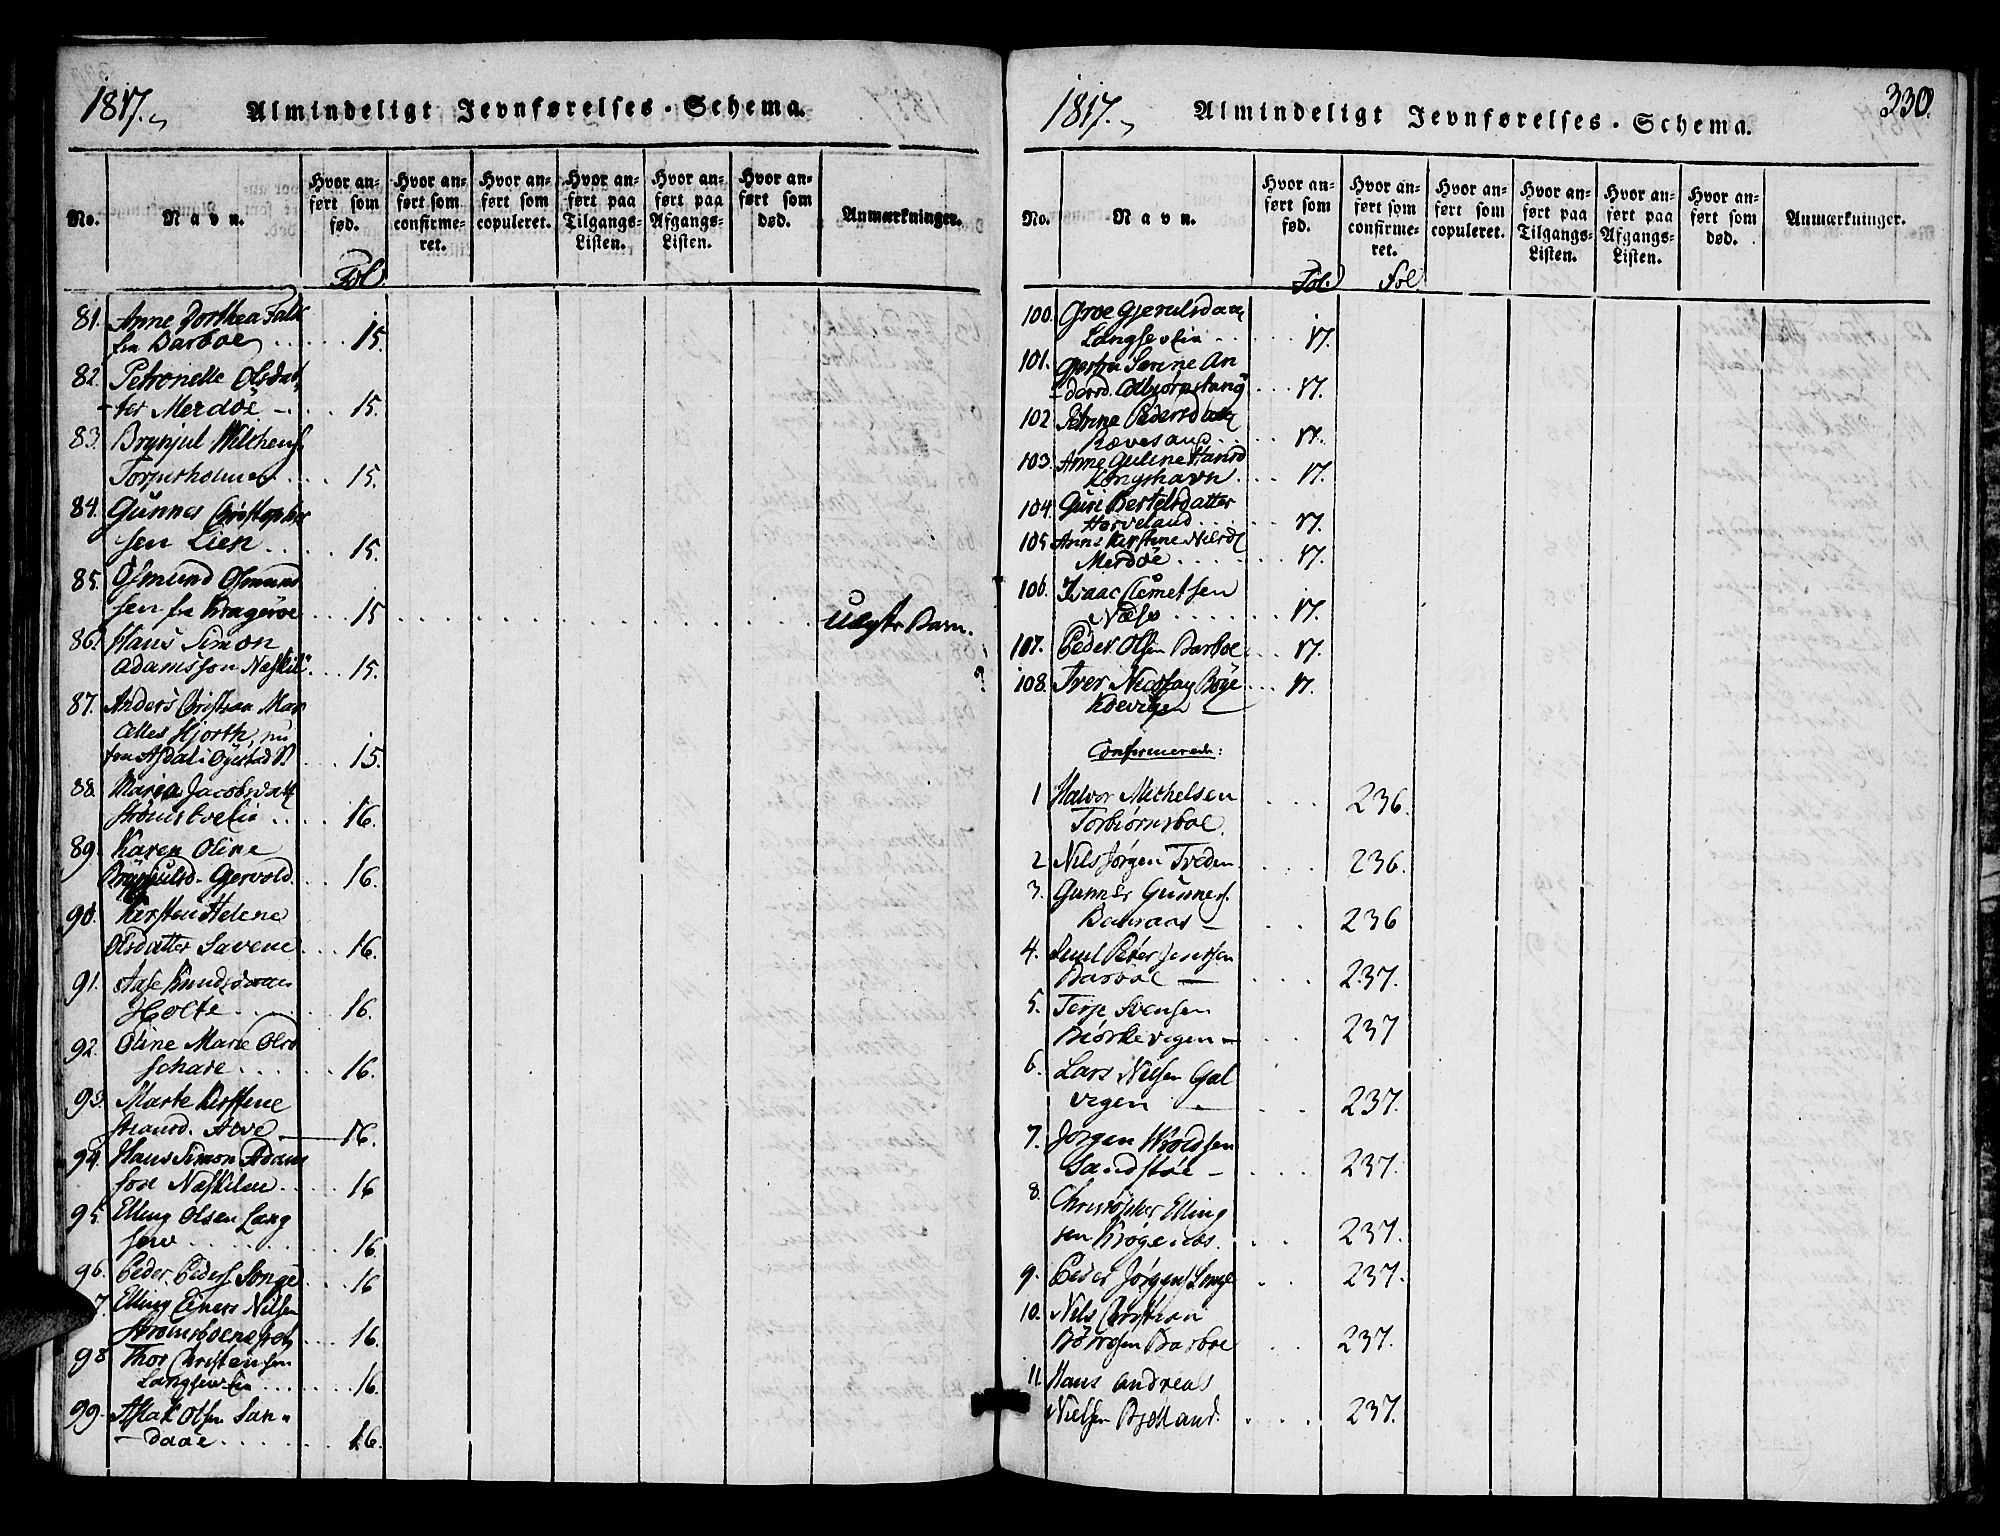 1817.
Almindeligt Jevnførelses-Schema.
No.
Navn.
Hvor anført som født.
Hvor anført som confirmeret.
Hvor anført som copuleret.
Hvor anført paa Tilgangs-Listen.
Hvor anført paa Afgangs-Listen.
Hvor anført som død.
Anmærkninger.
Fol
81. Anne Dorthea Falk
fra Barboe . . . . . 15.
82. Petronelle Olsdat-
ter Merdöe - . . . 15.
83. Brynjul Wilhems.
Torjusholmen . . . 15.
84. Gunner Christopher
sen Lien . . . . 15.
85. Osmund Osmund
sen fra Kragerøe . . . 15 . . . . . . . Uægte Barn.
86. Hans Simon
Adamsson Neskil . . . 15.
87. Anders Christian Mar
Hjorth, nu
15.
88. Maren Jacobsdatt
Strømsboelia . . . . 16.
89. Karen Oline
Gjervold . . . 16.
90. Kirsten Helene
Olsdatter Savene . . . 16.
91. Aase Knudsdaatt
Holte . . . . . . 16.
92. Oline Marie Olsd
Schare . . . . . . 16.
93. Marte Kirstene
Arve — 16.
94. Hans Simon Adam
son Neskilen . . . . 16
95. Elling Olsen Lang
sew . . . . . . . . 16.
96. Peder Peders. Songe . . . 16
7. Elling Nelsen
Strømsboeneset . . . 16.
98 Thor Christensen
Langsewlia . . . . . . 16.
99. Aslak Olsen San-
daae . . . . . . . 16.
1817.
Almindeligt Jevnførelses-Schema.
330.
No.
Navn.
Hvor anført som fød.
Hvor anført som confirmeret.
Hvor anført som copuleret.
Hvor anført paa Tilgangs-Listen.
Hvor anført paa Afgangs-Listen.
Hvor anført som død.
Anmærkninger.
Fol. Fol.
100. Groe Gjerulsdaatt
Langsevlia . . . . . 17.
101. Serine An
dersd. . . . 17.
102 Petrine Pedersdatt
Rævesand . . . . . 17.
103. Anne Guline Hansd
Kongshavn . . . 17.
104. Guri Bertelsdatter
Hørveland . . . . . 17.
105 Anne Kirstine Nielsd
Merdöe . . . . . . 17.
106. Isaac Clemetsen
Næss . . . . . . 17.
107. Peder Olsen Barboe . . . 17.
108. Iver Nicolay Böye
Kolevigen . . . 17.
Confirmerede:
1 Halvor Michelsen
Torbiørnsboe. . . . 236.
2 Nils Jørgen Treden . . . 236.
3. Gunner Gunners.
236
4. Poul Peter Jensen
Barboe — . . . 237.
5. Terje Svensen
Biørkevigen — . . 237
6. Lars Nilsen Gal
vigen — . . 237.
7. Jørgen
Sandstøe — . . . 237.
8. Christopher Elling
sen Krøgenæs. . . 237.
9. Peder Jörgens. Songe . . 237.
10. Nils Christian
Börresen Barboe . . 237.
11. Hans Andreas
Nielsen Bjelland . . . 237.